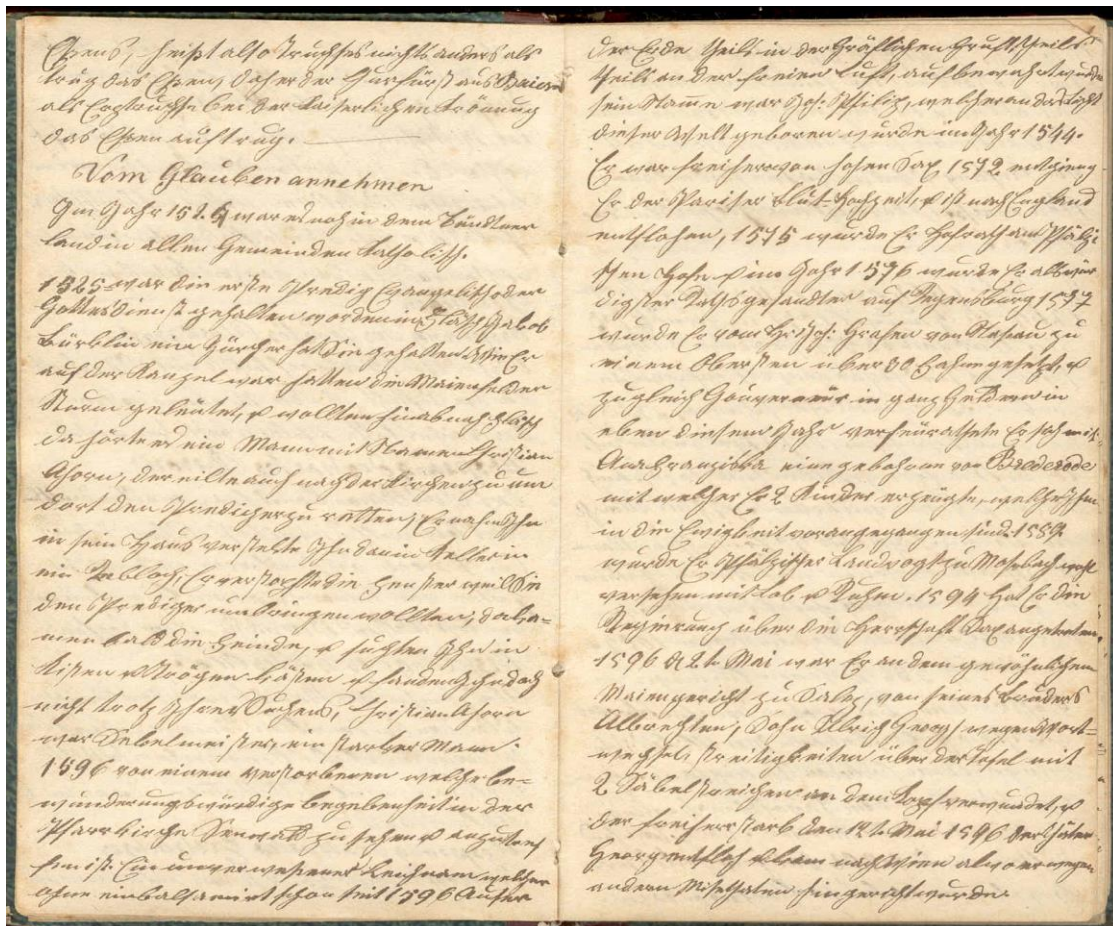 Essens, heißt also Truchses nichts anders als
trug das Essen, daher der Kurfürst aus Baiern
als Erztruchses bei der kaiserlichen Krönung
das Essen auftrug.
Vom Glauben annehmen
Im Jahr 152 war es noch in dem Bündtner
land in allen Gemeinden katholisch.
1525 war die erste Predig Evangelisch oder
Gottesdienst gehalten worden in Fläsch Jakob
Bürklin ein Zürcher hat Sie gehalten, Wie Er
auf der Kanzel war hatten die Maienfelder
Sturm geleutet, u wollten hinab nach Fläsch
da hörte es ein Mann mit Namen Christian
Ahorn, der eilte auch nach der Kirchen zu um
dort den Prediger zu retten, Er nahm Ihn
in sein Haus versteckte Ihn dann im Keller in
ein Er verstopfte die Fenster weil Sie
den Prediger umbringen wollten, da ka=
men bald die Feinde, u suchten Ihn in
Kisten u Trögen Kästen u fanden Ihn doch
nicht trotz Ihres Suchens, Christian Ahorn
war Sekelmeister, ein starker Mann.
1596 von einem verstorbenen welche be=
wunderungswürdige begebenheit in der
Pfarrkirche Sennwald zu sehen u anzutref
fen ist. Ein unverwesener Leichnam welcher
ohne einbalsamirt schon seit 1596 Ausser
der Erde theils in der Gräflichen Gruft, theils
theils an der freien Luft, aufbewahrt wurde
sein Name war Joh: Philip, welcher an das Licht
dieser Welt geboren wurde im Jahr 1544.
Er war freiherr von hohen Sax 1572 entgieng
Er der Pariser Blut-Hochzeit, u ist nach England
entflohen, 1575 wurde Er Hofrath am Pfälzi
schen Hofe u im Jahr 1576 wurde Er als wür
digster Rathsgesandter auf Regensburg 1577
wurde Er vom Hr: Joh: Grafen von Nassau zu
einem Obersten über 30 Fahnen gesetzt, u
zugleich Gouverneur in ganz Geldern in
eben diesem Jahr verheurathete Er sich mit
Ana Franziska eine gebohrne von Brederode
mit welcher Er 2 Kinder erzeugte, welche Ihm
in die Ewigkeit vorangegangen sind. 158
wurde Er Pfälzischer Landvogt zu Mosbach wohl
versehen mit Lob u Ruhm. 1594 hat Er die
Regierung über die Herrschaft Sax angetreten
1596 d 2t Mai war Er an dem gewöhnlichen
Maiengericht zu Salez, von seines Bruders
Albrechten, Sohn Ulrich Georg, wegen Wort=
wechsel, streitigkeiten über der Tafel mit
2 Säbelstreichen an dem Kopf verwundet, u
der freiherr starb den 12t Mai 1596 der thäter
Georg entfloh u kam nach Wien alwo er wegen
andern Missethaten hingericht wurde.